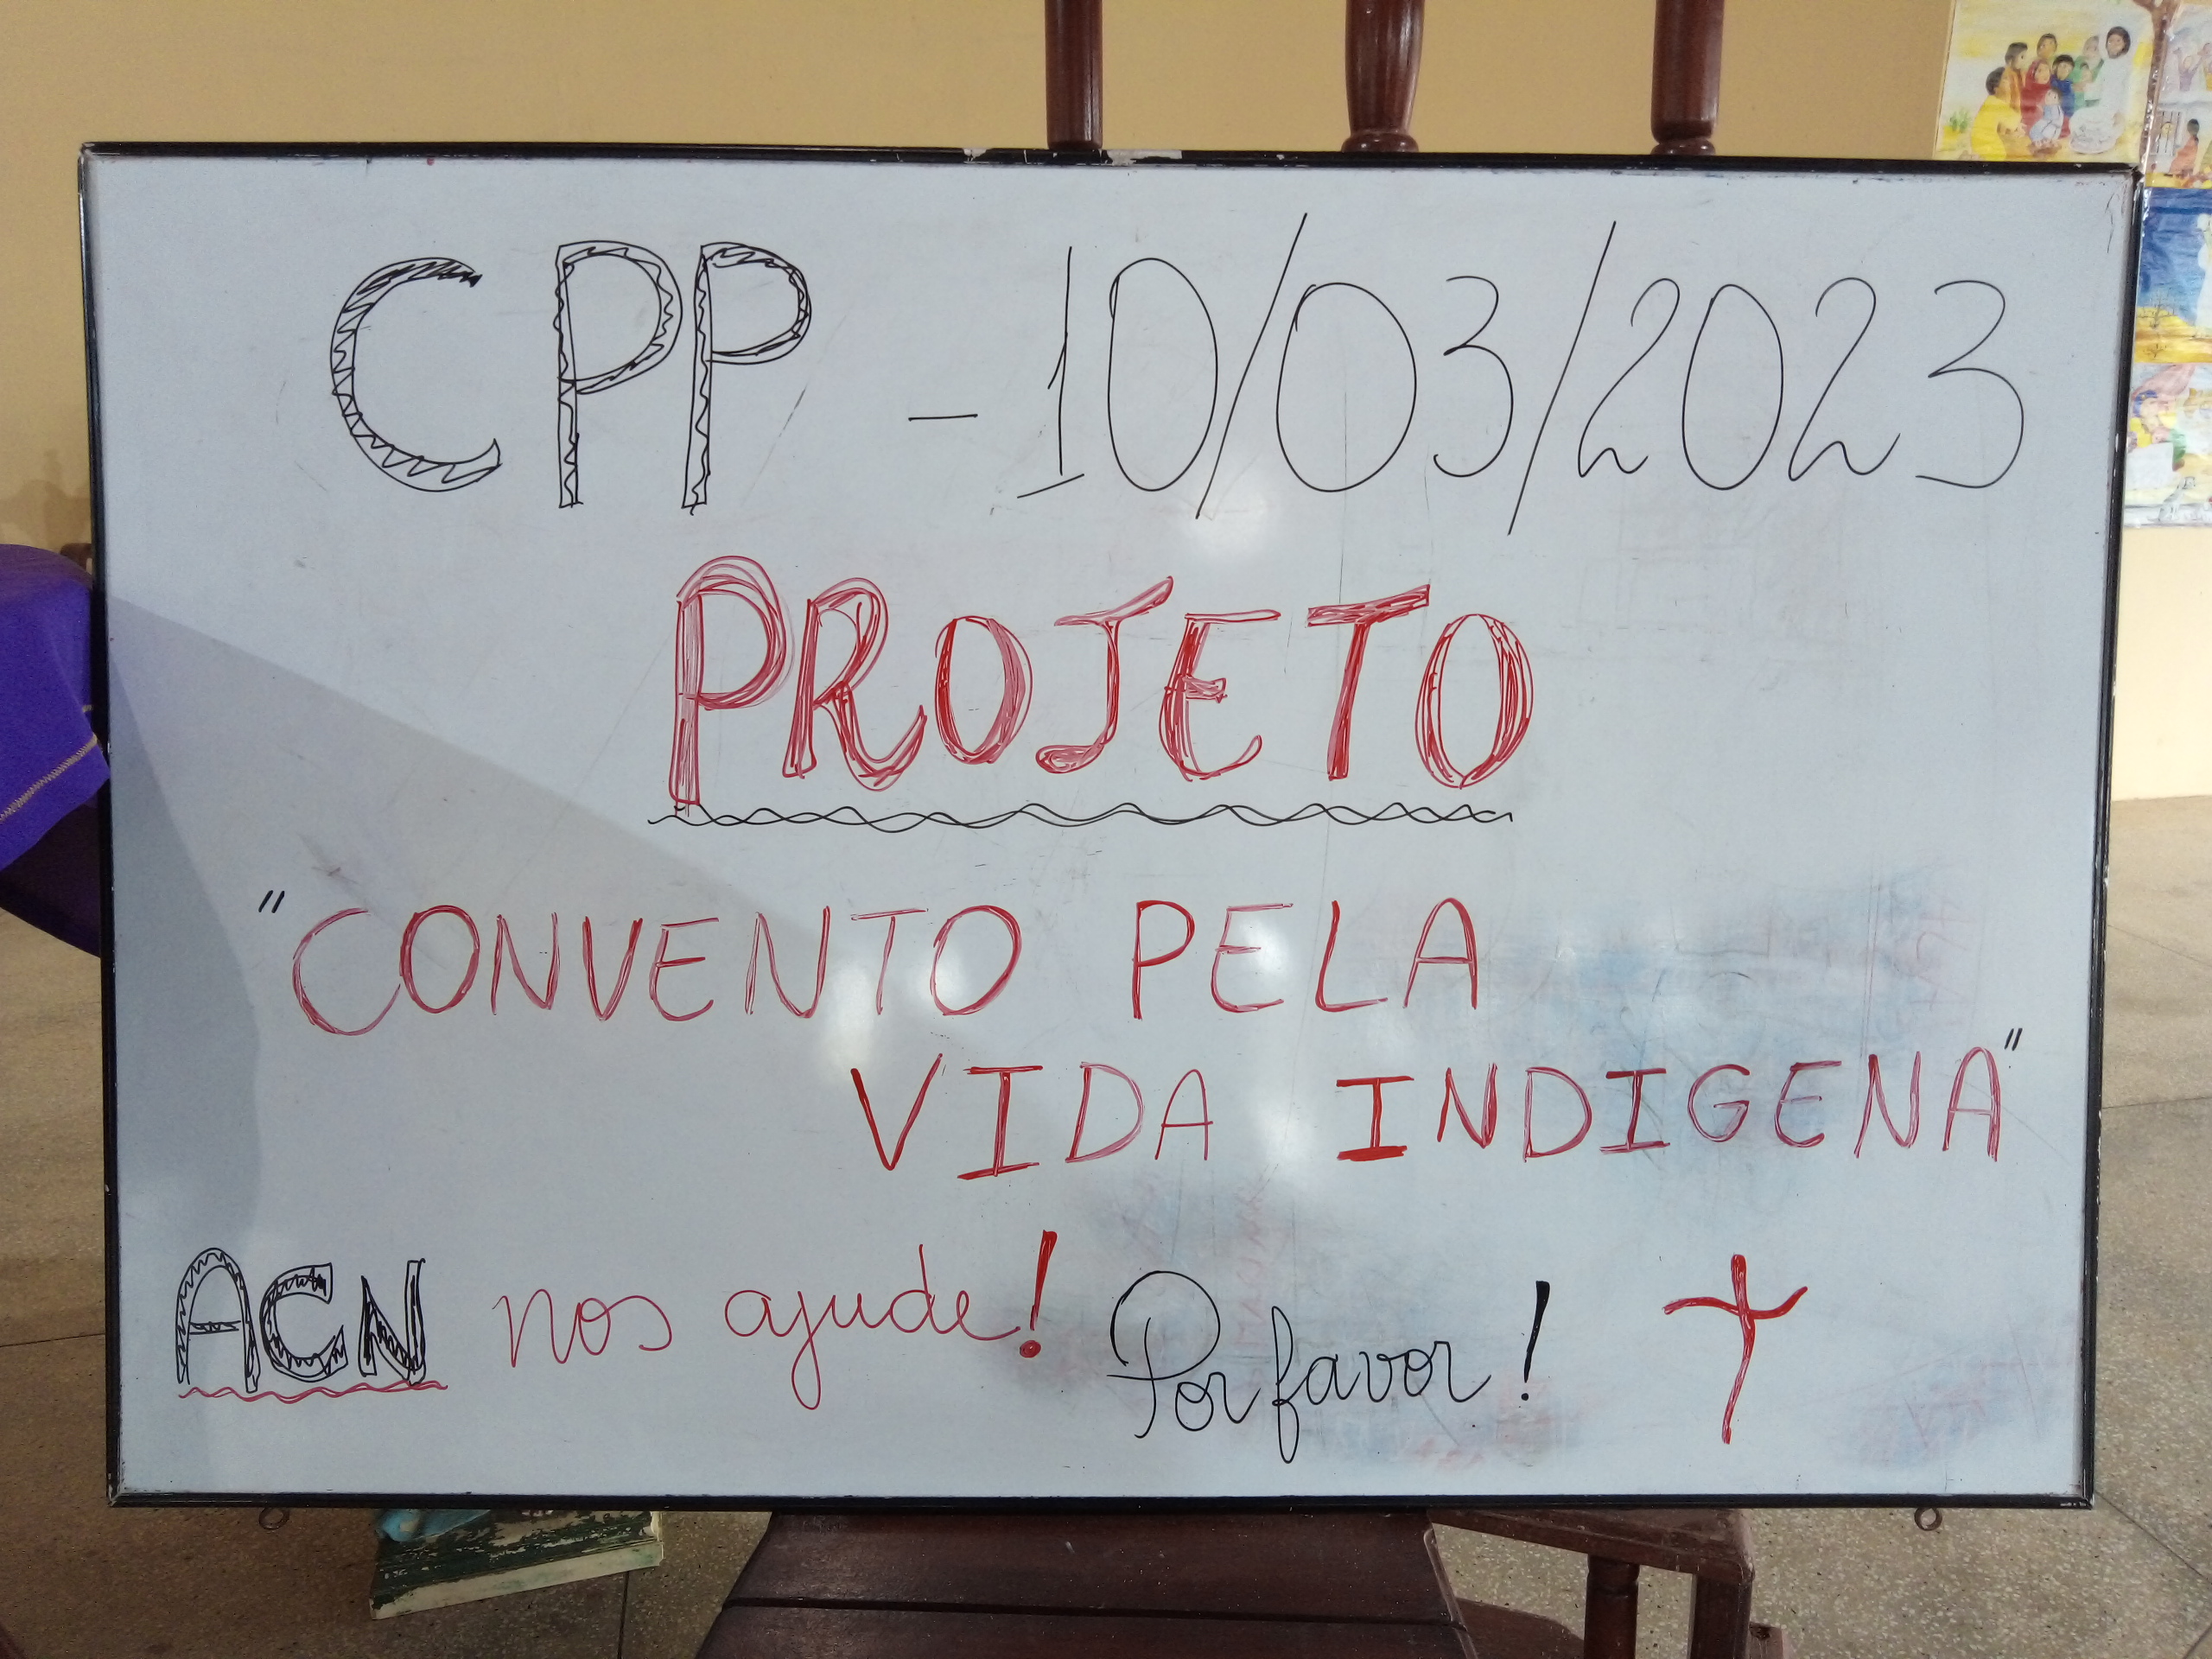 CPP - 10/03/2023
PROJETO
"CONVENTO PELA
VIDA INDIGENA"
ACN nos ajude! Por favor!